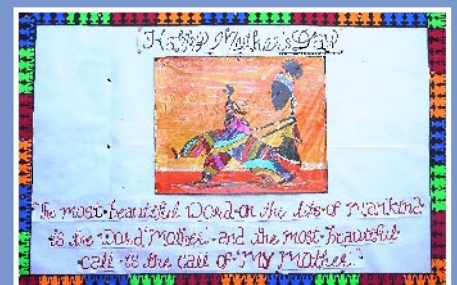 Happy Mother's Day
"The most beautiful Word on the lips of Mankind
is the Word "Mother" and the most beautiful
call is the call of "My Mother"."